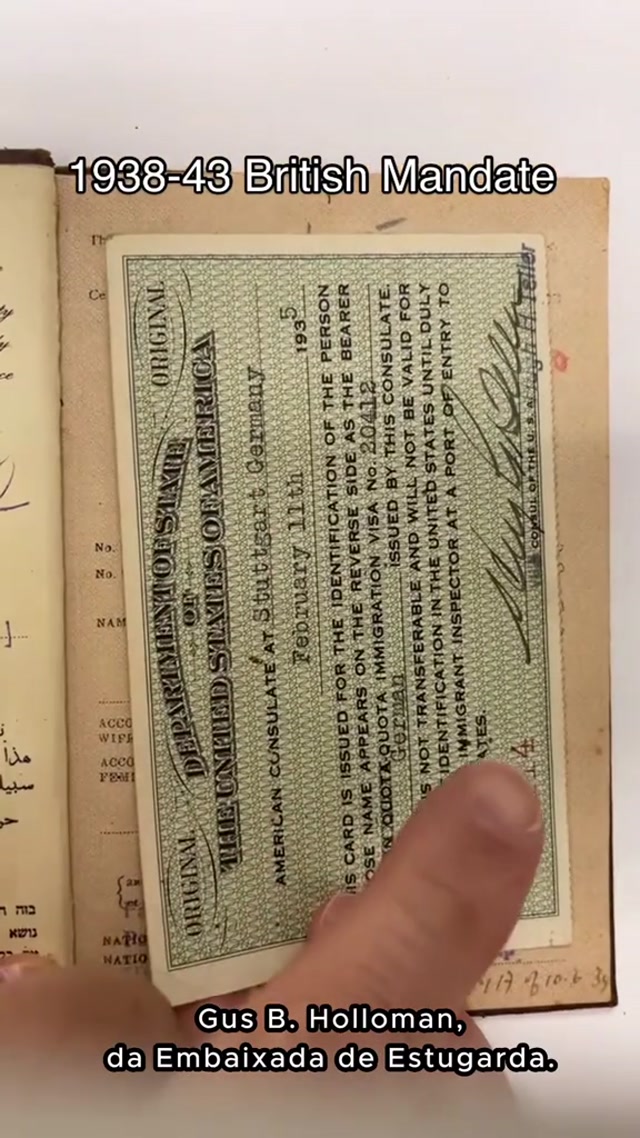 1938-43 British Mandate
ORIGINAL
ORIGINAL
DEPARTMENT OF STATE
OF
THE UNITED STATES OF AMERICA
AMERICAN CONSULATE AT Stuttgart Germany
February 11th 1935
IS CARD IS ISSUED FOR THE IDENTIFICATION OF THE PERSON
OSE NAME APPEARS ON THE REVERSE SIDE AS THE BEARER
QUOTA IMMIGRATION VISA No. 20412
German ISSUED BY THIS CONSULATE.
IS NOT TRANSFERABLE AND WILL NOT BE VALID FOR
IDENTIFICATION IN THE UNITED STATES UNTIL DULY
IMMIGRANT INSPECTOR AT A PORT OF ENTRY TO
ATES.
CONSUL OF THE U.S.A.
Teller
4
No.
No.
NAM
ACCO
WIF
ACCO
NATIO
NATIO
هذا
سبيل
בזה
נושא
Gus B. Holloman,
da Embaixada de Estugarda.